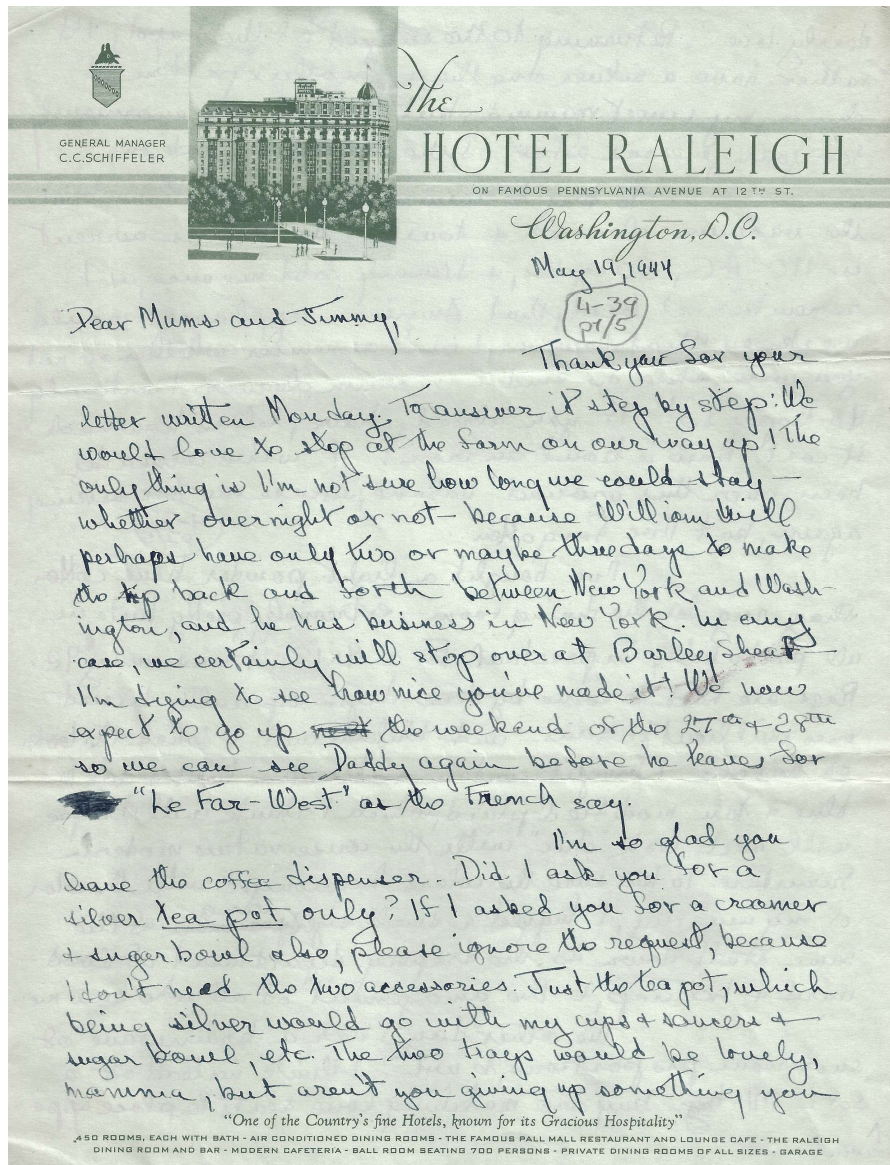 GENERAL MANAGER
C.C.SCHIFFELER
The
HOTEL RALEIGH
ON FAMOUS PENNSYLVANIA AVENUE AT 12TH ST.
Washington, D.C.
May 19, 1944
4-39
pt/5
Dear Mums and Jimmy,
Thank you for your
letter written Monday. To answer it step by step: We
would love to stop at the farm on our way up! The
only thing is I'm not sure how long we could stay —
whether overnight or not — because William will
perhaps have only two or maybe three days to make
the trip back and forth between New York and Wash-
ington, and he has business in New York. In any
case, we certainly will stop over at Barley Sheaf —
I'm dying to see how nice you've made it! We now
expect to go up next the weekend of the 27th & 28th
so we can see Daddy again before he leaves for
"Le Far-West" as the French say.
I'm so glad you
have the coffee dispenser. Did I ask you for a
silver tea pot only? If I asked you for a creamer
& sugar bowl also, please ignore the request, because
I don't need the two accessories. Just the tea pot, which
being silver would go with my cups & saucers &
sugar bowl, etc. The two trays would be lovely,
mamma, but aren't you giving up something you
"One of the Country's fine Hotels, known for its Gracious Hospitality"
450 ROOMS, EACH WITH BATH - AIR CONDITIONED DINING ROOMS - THE FAMOUS PALL MALL RESTAURANT AND LOUNGE CAFE - THE RALEIGH
DINING ROOM AND BAR - MODERN CAFETERIA - BALL ROOM SEATING 700 PERSONS - PRIVATE DINING ROOMS OF ALL SIZES - GARAGE